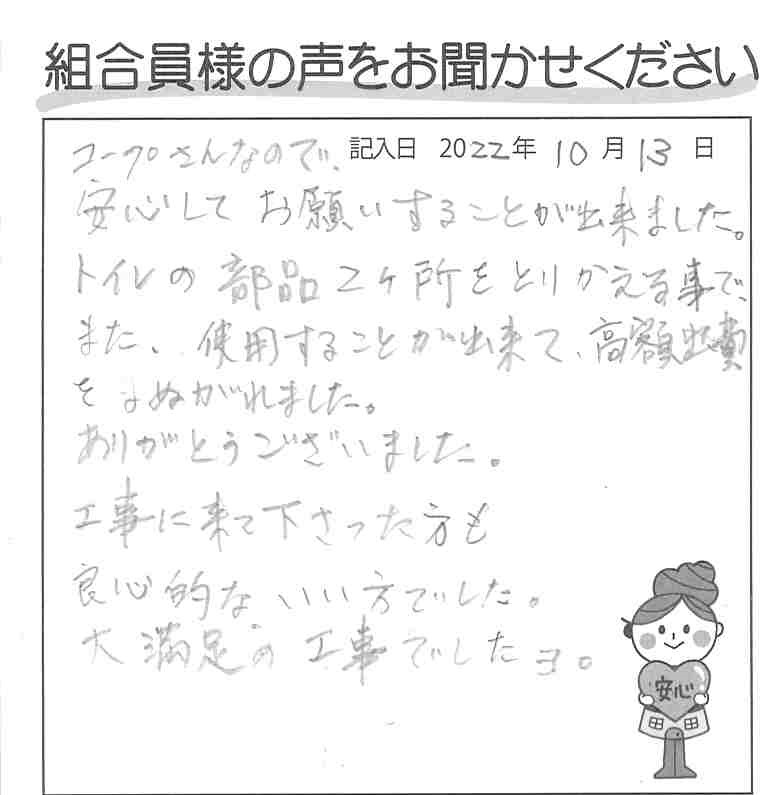 組合員様の声をお聞かせください
記入日 2022年 10月 13日
コープさんなので、
安心して お願いすることが出来ました。
トイレの 部品2ヶ所をとりかえる事で、
また、使用することが出来て、高額出費
をまぬがれました。
ありがとうございました。
工事に来て下さった方も
良心的な いい方でした。
大満足の 工事でしたヨ。
安心